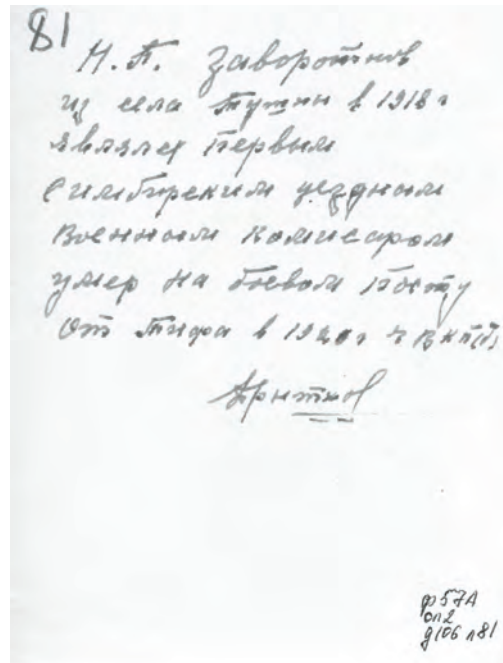 81
Н. П. Заворотнов
из села Тушны в 1918 г
являлся Первым
Симбирским уездным
Военным Комисаром
умер на боевом Посту
От Тифа в 1920 г ч ВКП(б)
ф 57А
оп2
д106 л81